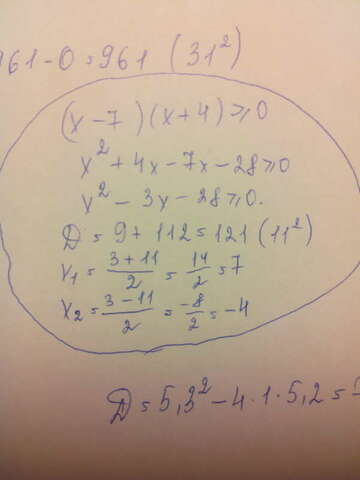 961-0=961 (31²)
(x-7)(x+4)⩾0
x²+4x-7x-28⩾0
x²-3x-28⩾0.
D=9+112=121(11²)
x₁=\frac{3+11}{2}=\frac{14}{2}=7
x₂=\frac{3-11}{2}=\frac{-8}{2}=-4
D=5,3²-4·1·5,2=